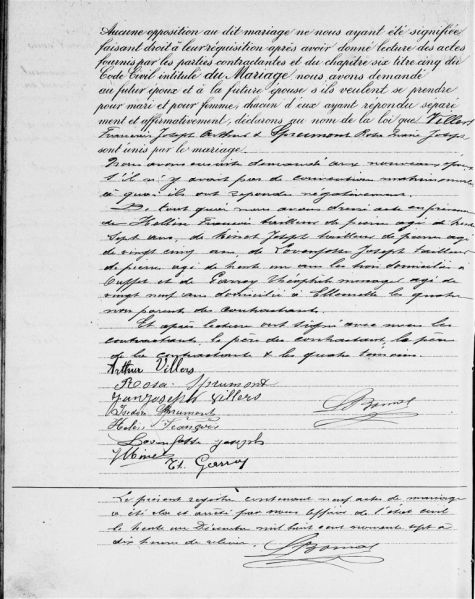 Aucune opposition au dit mariage ne nous ayant été signifiée
faisant droit à leur réquisition après avoir donné lecture des actes
fournis par les parties contractantes et du chapitre six titre cinq du
Code Civil intitulé du Mariage nous avons demandé
au futur époux et à la future épouse s'ils veulent se prendre
pour mari et pour femme, chacun d'eux ayant répondu séparé
ment et affirmativement, déclarons au nom de la loi que Villers
François Joseph Arthur & Sprumont Rosa Marie Joseph
sont unis par le mariage.
Nous avons ensuite demandé aux nouveaux époux
s'il n'y avait pas de convention matrimoniale
à quoi ils ont répondu négativement.
De tout quoi nous avons dressé acte en présence
de François tailleur de pierre âgé de trente
sept ans, de Joseph tailleur de pierre âgé
de vingt cinq ans, de Joseph tailleur
de pierre âgé de trente un ans les trois domiciliés à
et de Garroy Théophile âgé de
vingt neuf ans domicilié à les quatre
non parents des contractants.
Et après lecture ont signé avec nous les
contractants, le père du contractant, la père
de la contractante & les quatre témoins.
Arthur Villers
Rosa Sprumont
Jean Joseph Villers
Sprumont
François
Joseph
Th. Garroy
Le présent registre contenant neuf actes de mariage
a été clos et arrêté par nous officier de l'état civil
le trente un Décembre mil huit cent nonante sept à
dix heures de relevée.